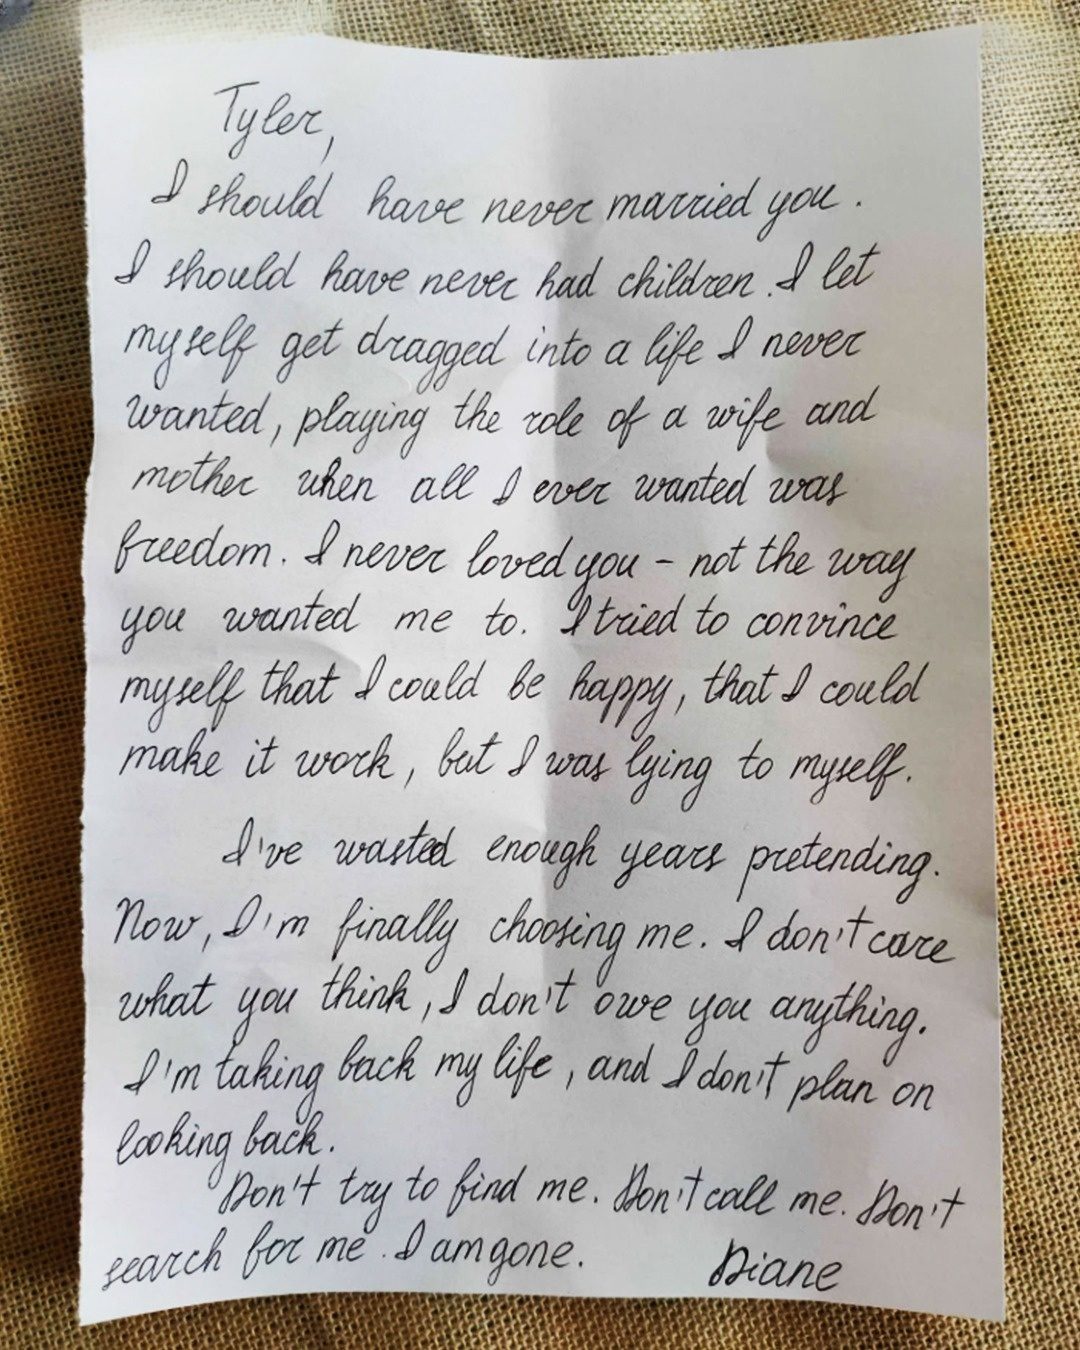 Tyler,
I should have never married you.
I should have never had children. I let
myself get dragged into a life I never
wanted, playing the role of a wife and
mother when all I ever wanted was
freedom. I never loved you - not the way
you wanted me to. I tried to convince
myself that I could be happy, that I could
make it work, but I was lying to myself.
I've wasted enough years pretending.
Now, I'm finally choosing me. I don't care
what you think, I don't owe you anything.
I'm taking back my life, and I don't plan on
looking back.
Don't try to find me. Don't call me. Don't
search for me. I am gone.
Diane